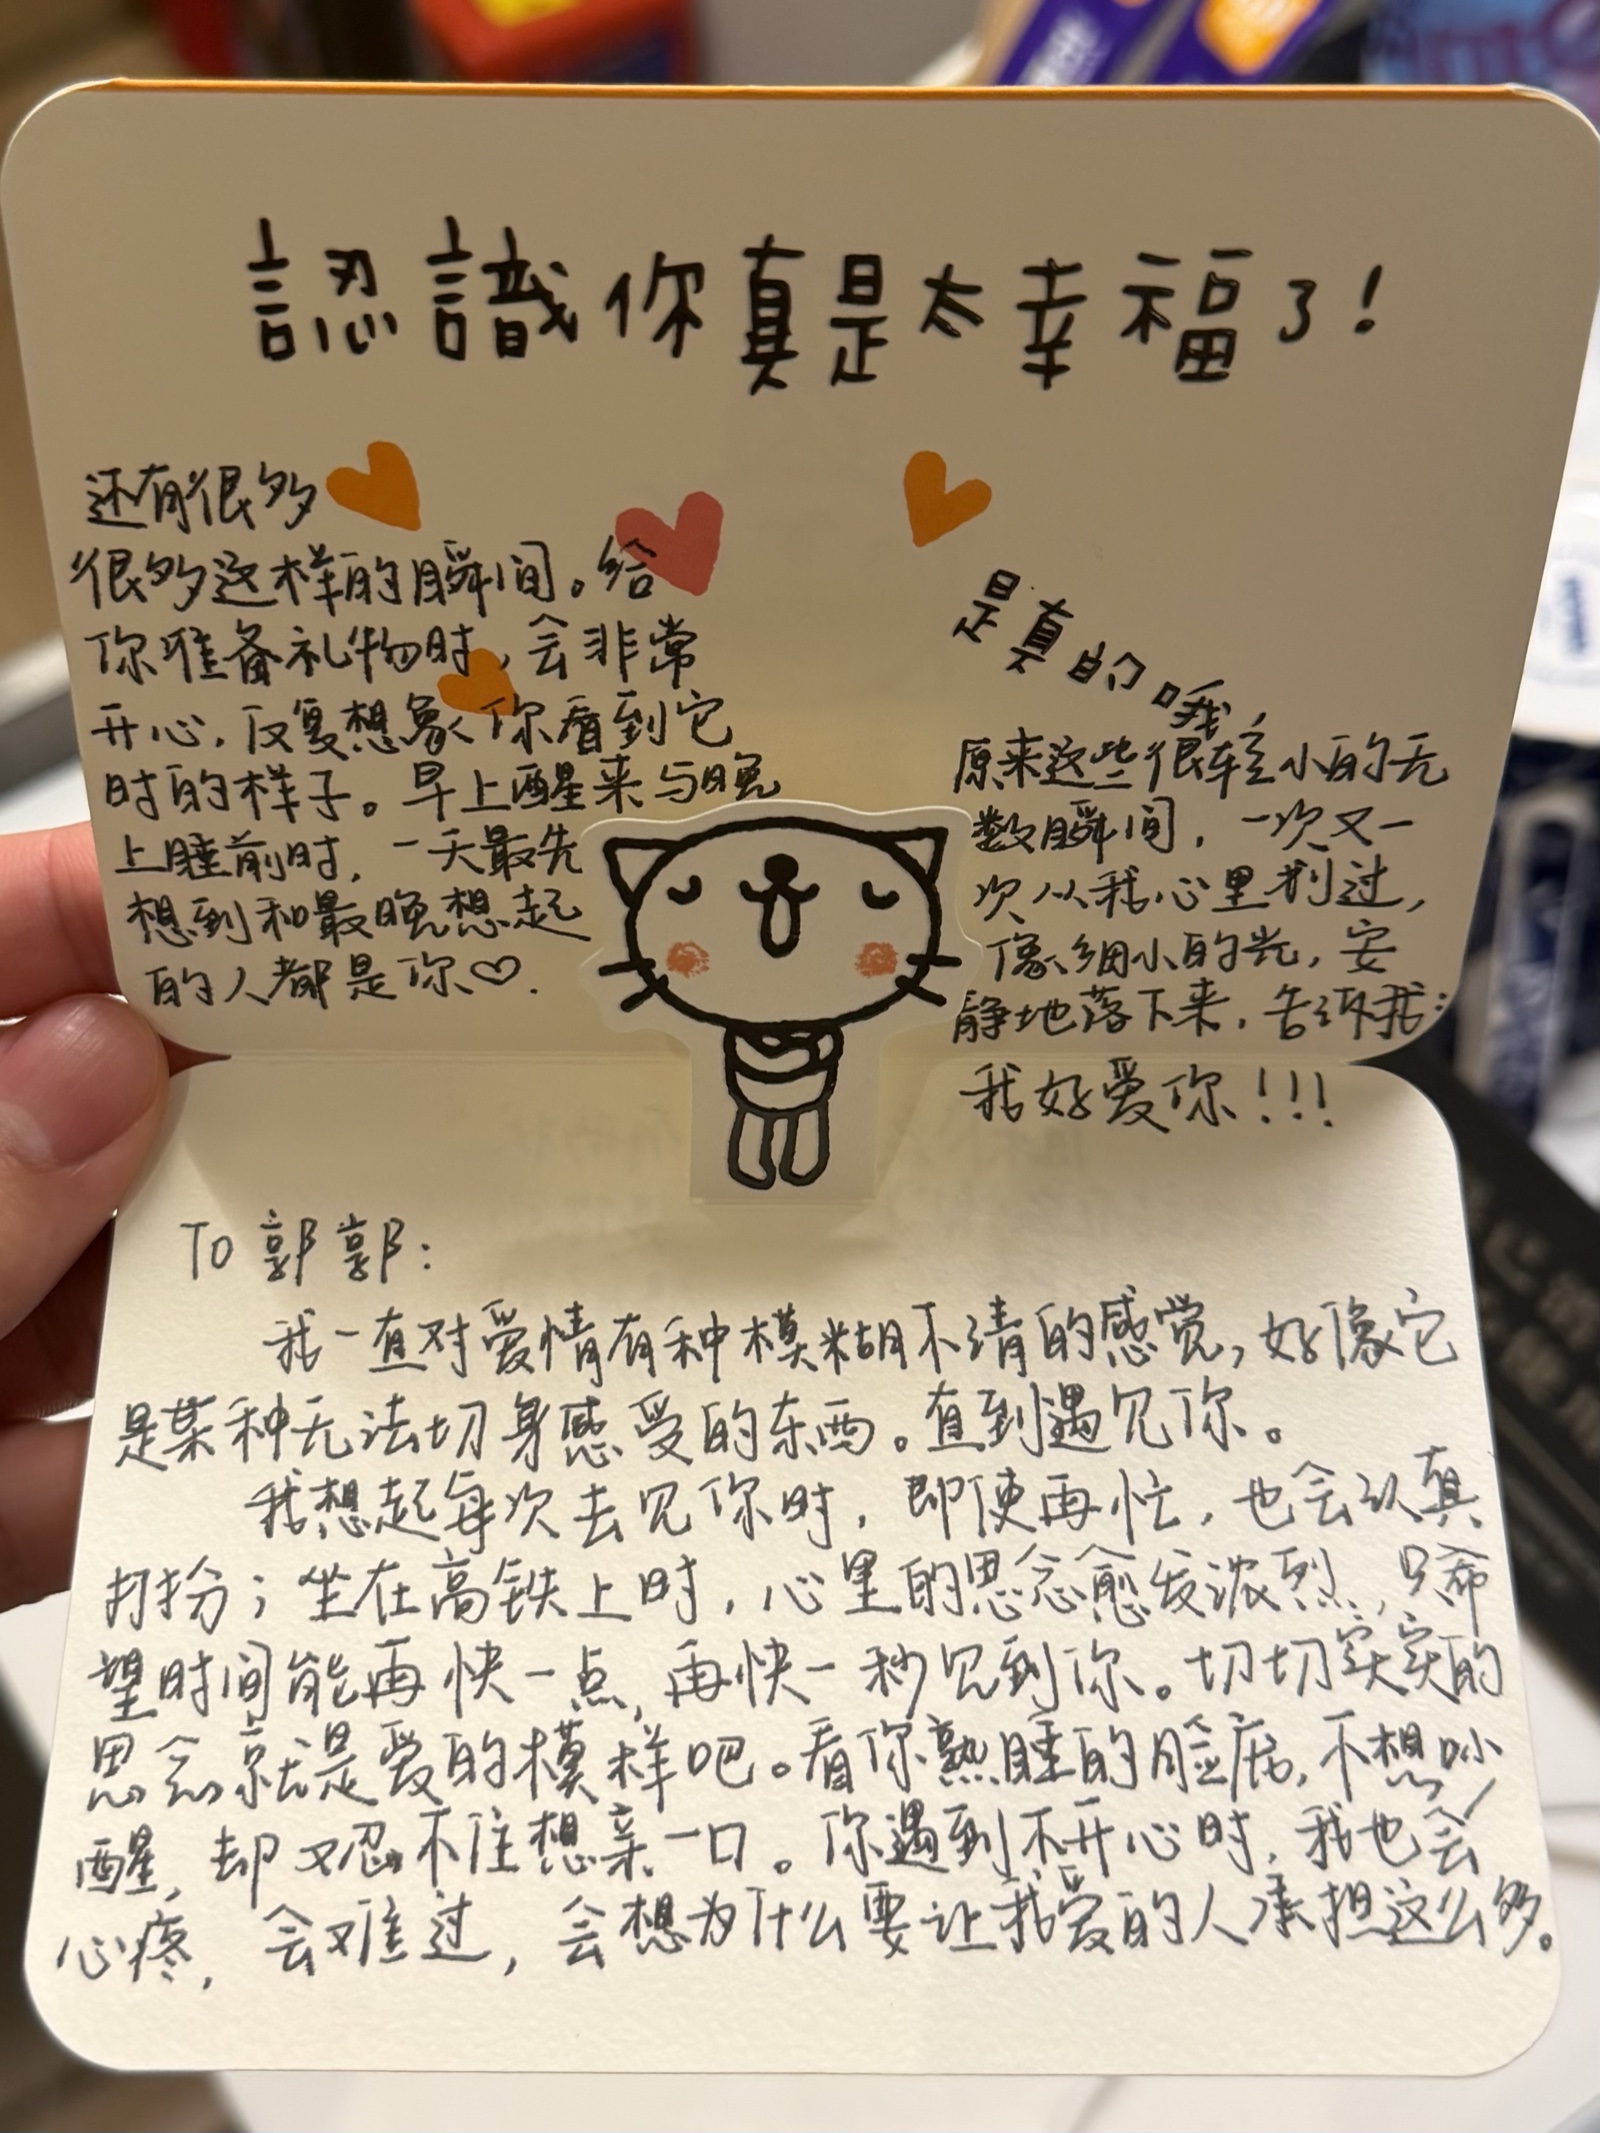 認識你真是太幸福了!
还有很多
很多这样的瞬间。给
你准备礼物时,会非常
开心,反复想象你看到它
时的样子。早上醒来与晚
上睡前时,一天最先
想到和最晚想起
的人都是你♡.
是真的哦,
原来这些很轻小的无
数瞬间,一次又一
次从我心里划过,
像细小的光,安
静地落下来,告诉我:
我好爱你!!!
TO 郭郭:
我一直对爱情有种模糊不清的感觉,好像它
是某种无法切身感受的东西。直到遇见你。
我想起每次去见你时,即使再忙,也会认真
打扮;坐在高铁上时,心里的思念愈发浓烈,只希
望时间能再快一点,再快一秒见到你。切切实实的
思念就是爱的模样吧。看你熟睡的脸庞,不想吵
醒,却又忍不住想亲一口。你遇到不开心时,我也会
心疼,会难过,会想为什么要让我爱的人承担这么多。